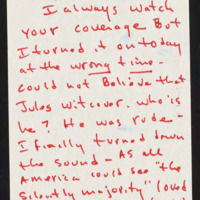 I always watch
your coverage But
I turned it on today
at the wrong time.
could not Believe that
Jules witcover. who is
he? He was rude-
I finally turned down
the sound - As all
America could see "the
Silently majority" loved